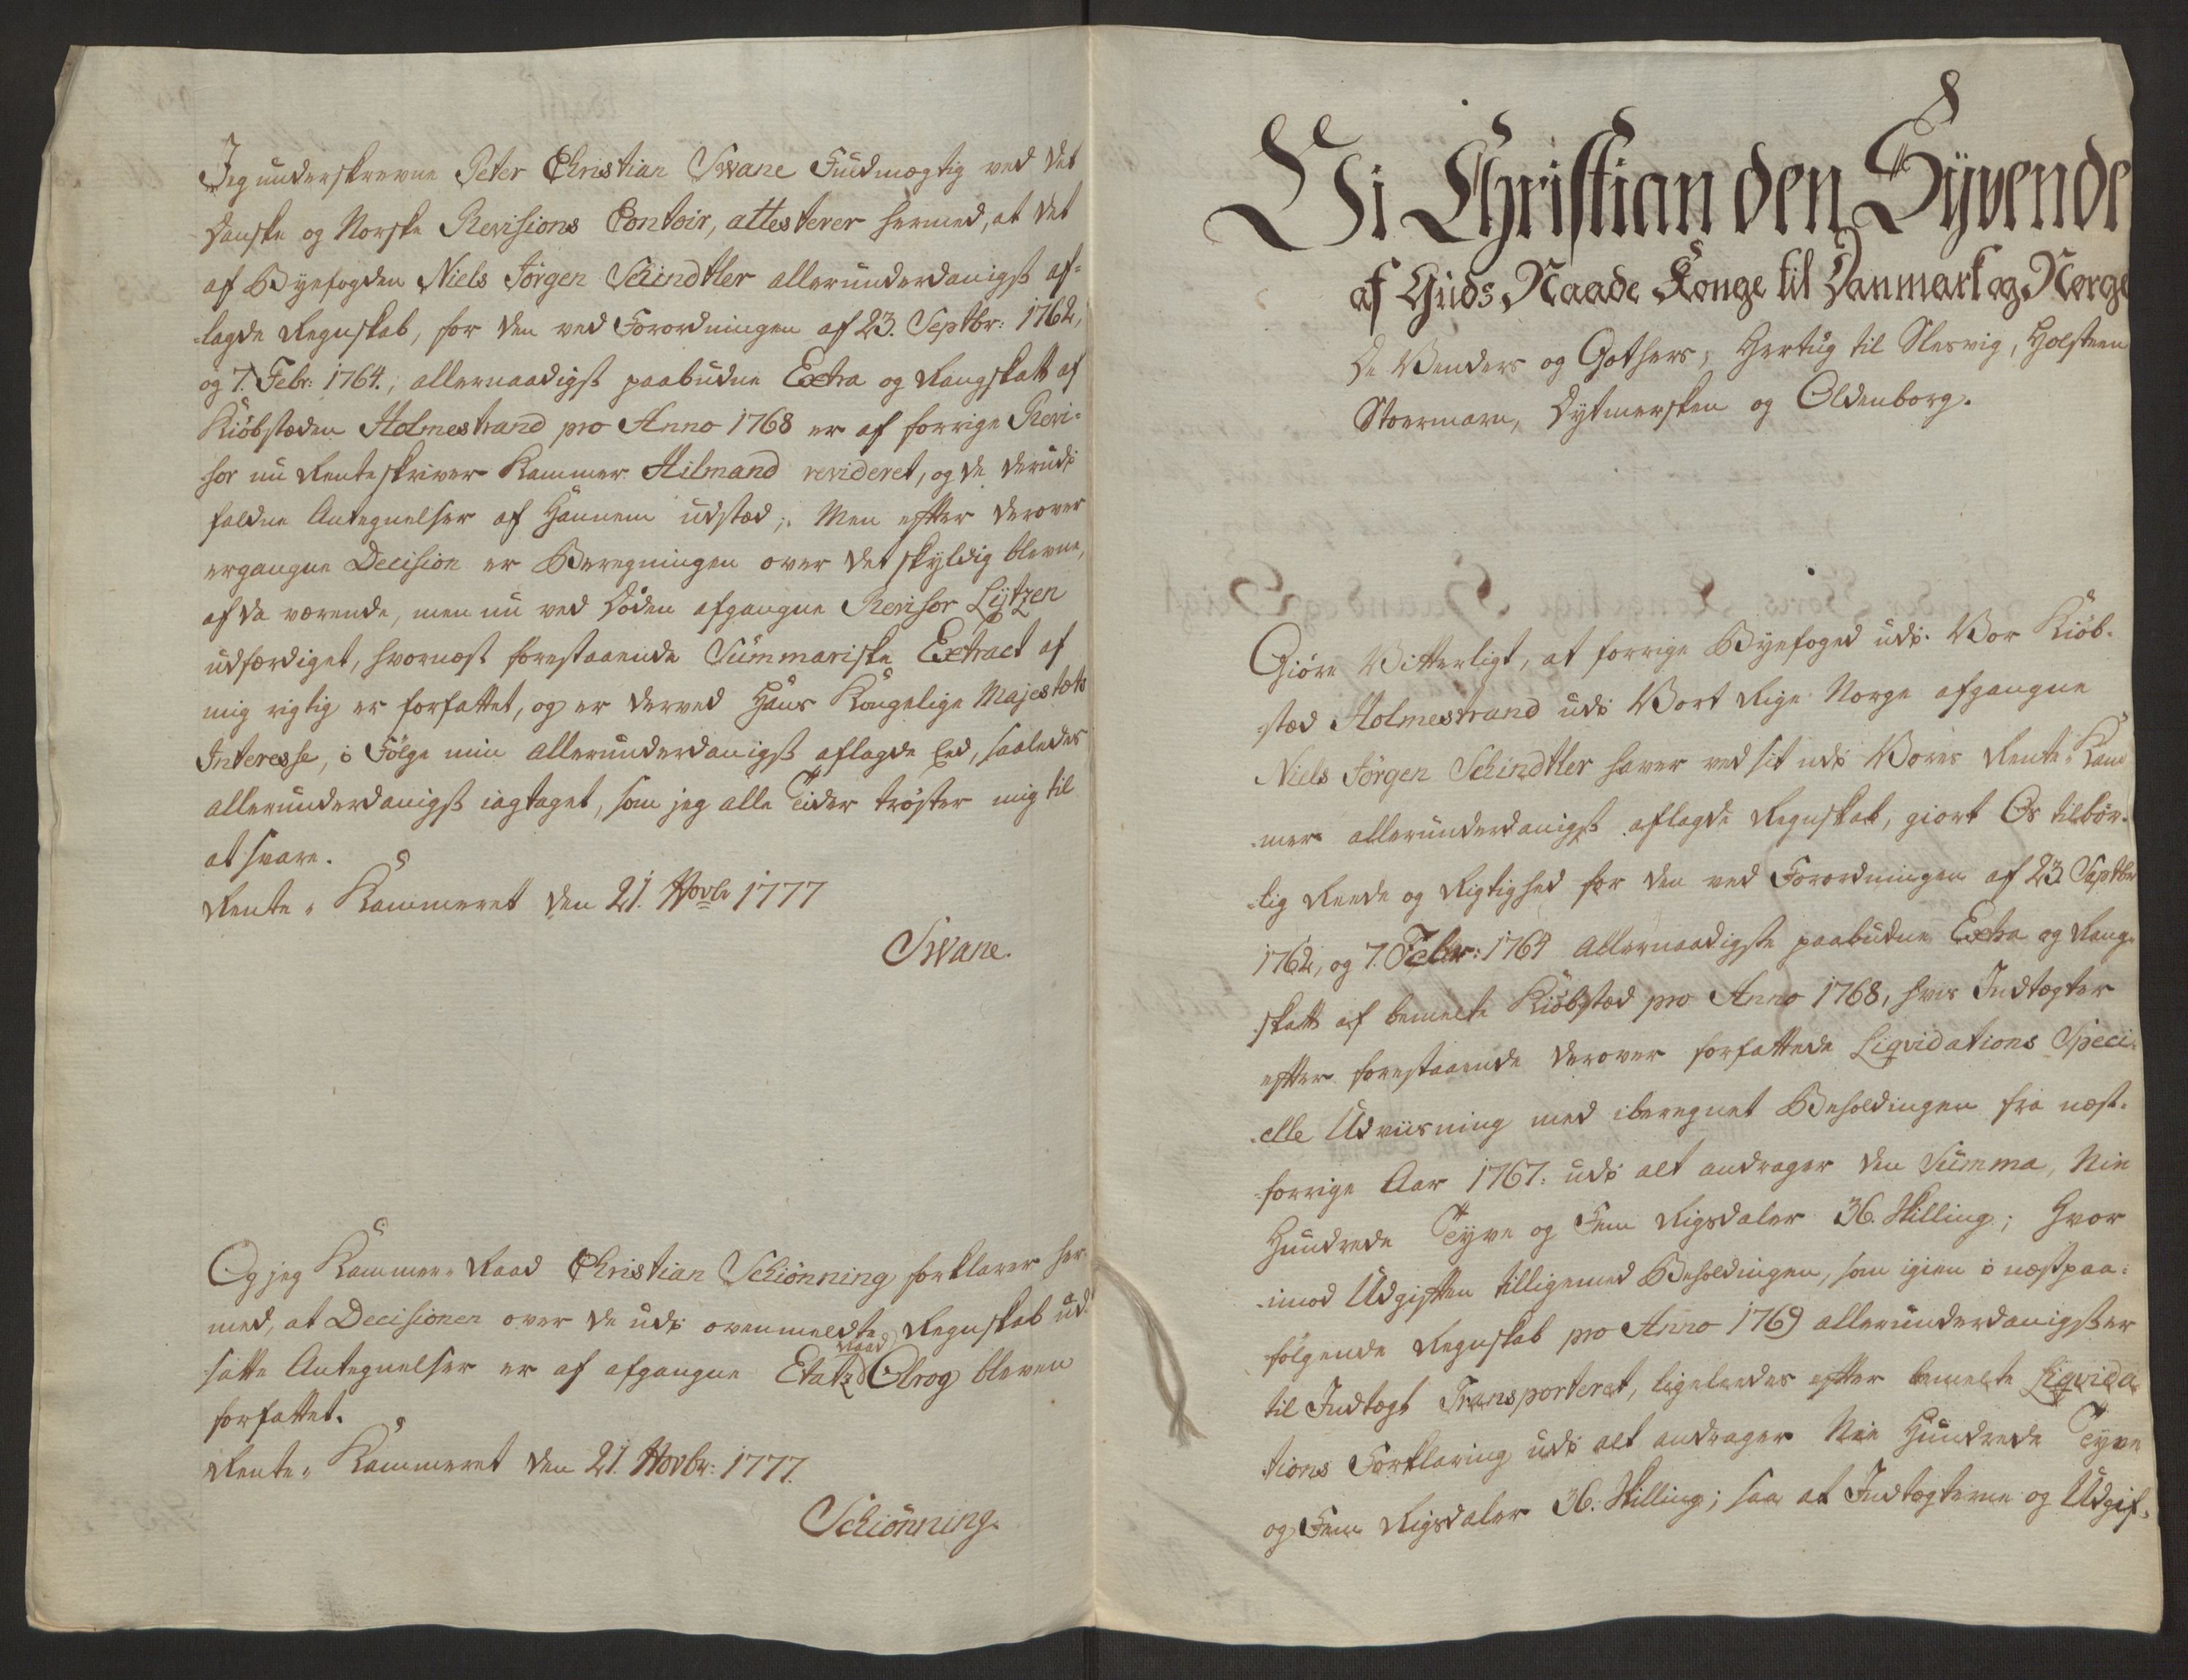 Jeg underskrevne Peter Christian Swane Fuldmægtig ved det
Danske og Norske Revisions Contoir, attesterer hermed, at det
af Byefogden Niels Jörgen Schindtler allerunderdanigst af-
lagde Regnskab, for den ved Forordningen af 23. Septbr: 1762,
og 7. Febr: 1764., allernaadigst paabudne Extra og Rangskatt af
Kiöbstæden Holmestrand pro Anno 1768 er af forrige Revi-
sor nu Renteskriver Kammer. Hilmand revideret, og de derudi
faldne Antegnelser af Hannem udstæd; Men efter derover
ergangne Decision er Beregningen over det skyldig blevne,
af da værende, men nu ved Döden afgangne Revisor Lützen
udfærdiget, hvornæst forestaaende Summariske Extract af
mig rigtig er forfattet, og er derved Hans Kongelige Majestæts
Interesse, i Fölge min allerunderdanigst aflagde Eed, saaledes
allerunderdanigst iagtaget, som jeg alle Tider tröster mig til
at svare.
Rente-Kammeret den 21. Novbr 1777
Swane.
Og jeg Kammer-Raad Christian Schiönning forklarer her-
med, at Decisionen over de udi ovenmeldte Regnskab ud-
satte Antegnelser er af afgangne Etatz Raad Olrog bleven
forfattet.
Rente-Kammeret den 21. Novbr: 1777.
Schiönning.
Vi Christian den Syvende
af Guds Naade Konge til Danmark og Norge
De Venders og Gothers, Hertug til Slesvig, Holsteen
Stoermarn, Dytmersken og Oldenborg.
Giöre Vitterligt, at forrige Byefoged udi Vor Kiöb-
stæd Holmestrand udi Vort Rige Norge afgangne
Niels Jörgen Schindtler haver ved sit udi Vores Rente-Kam
mer allerunderdanigst aflagde Regnskab, giort Os tilbör-
lig Reede og Rigtighed for den ved Forordningen af 23 Septbr
1762, og 7. Febr: 1764 allernaadigste paabudne Extra og Rang-
skatt af bemelte Kiöbstæd pro Anno 1768, hvis Indtægter
efter forestaaende derover forfattede Liqvidations Speci-
elle Udviisning med iberegnet Beholdingen fra næst-
forrige Aar 1767. udi alt andrager den Summa, Nie
Hundrede Tyve og Fem Rigsdaler 36. Skilling; Hvor
imod Udgiften tilligemed Beholdingen, som igien i næstpaa-
fölgende Regnskab pro Anno 1769 allerunderdanigst er
til Indtægt Transporteret, ligeleedes efter bemelte Liqvida-
tions Forklaring udi alt andrager Nie Hundrede Tyve
og Fem Rigsdaler 36. Skilling; saa at Indtægterne og Udgif-